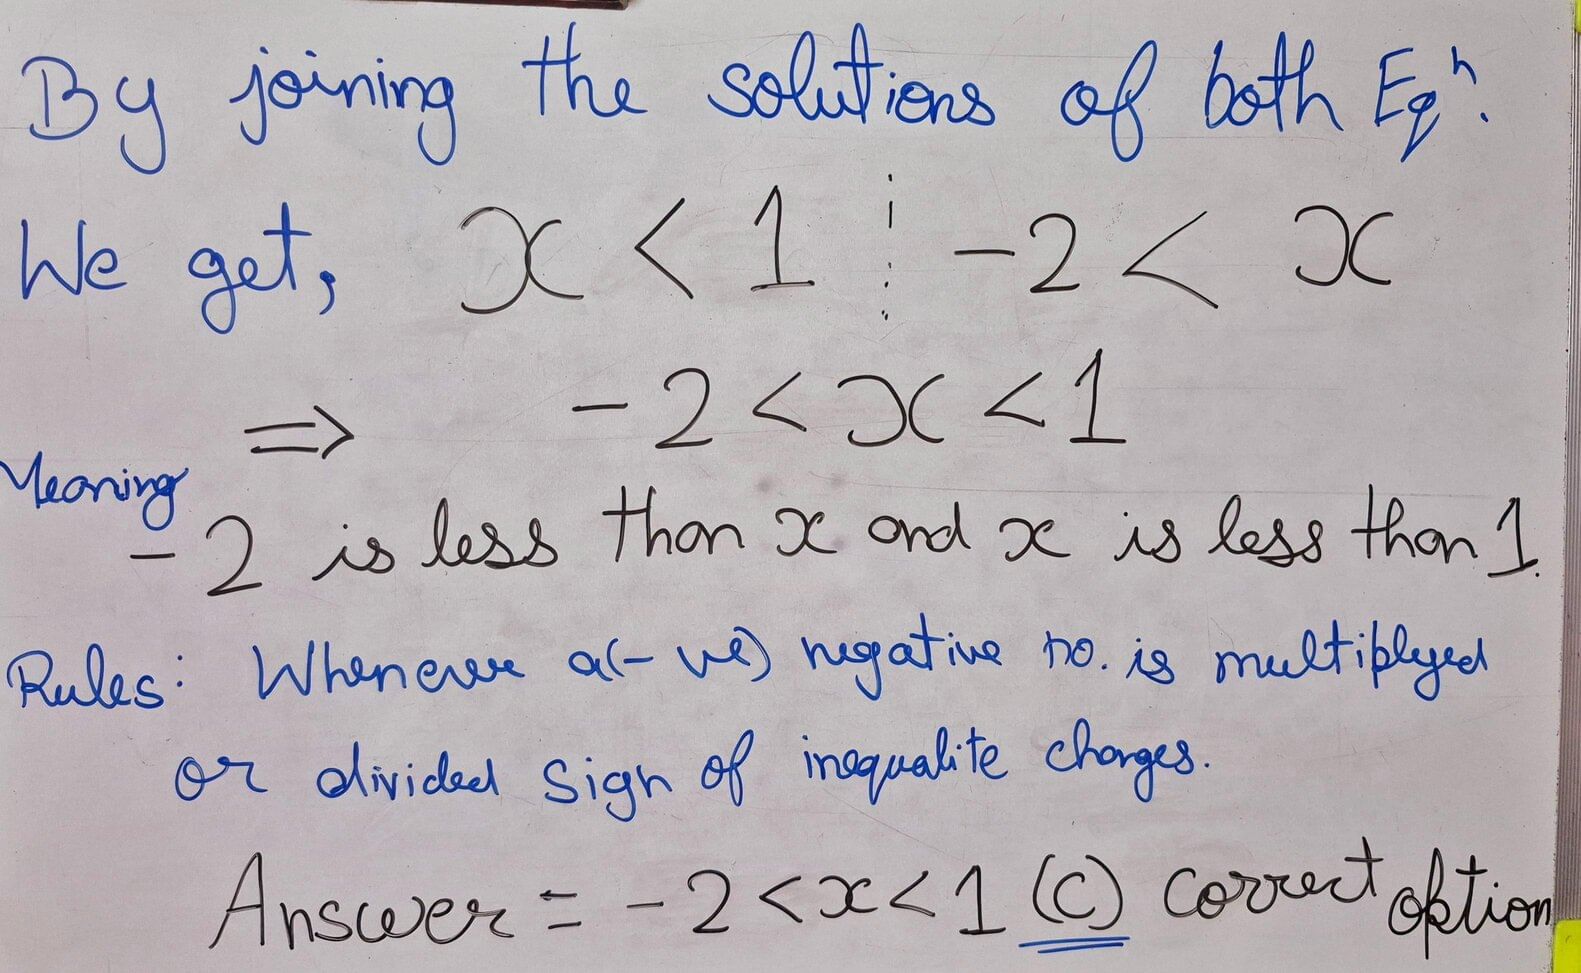 By joining the solutions of both Eqⁿ.
We get, x < 1 ⋮ -2 < x
⇒ -2 < x < 1
Meaning
-2 is less than x and x is less than 1.
Rules: Whenever a(-ve) negative no. is multiplyed
or divided sign of inequalite changes.
Answer = -2 < x < 1 (C) correct option